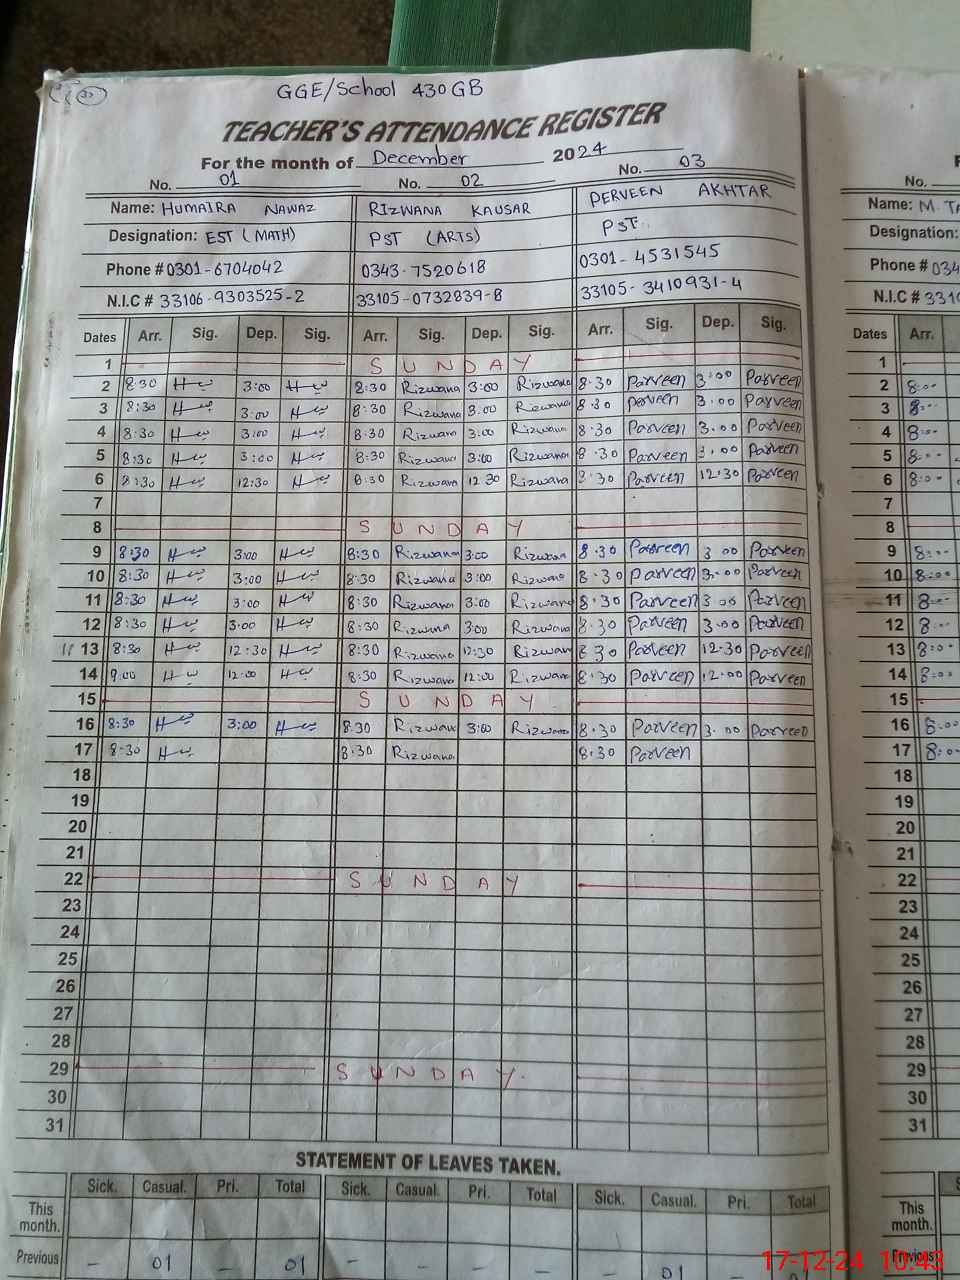 GGE/School 430 GB
TEACHER'S ATTENDANCE REGISTER
For the month of December 2024
No. 01 No. 02 No. 03 No.
Name: HUMAIRA NAWAZ RIZWANA KAUSAR PERVEEN AKHTAR Name:
Designation: EST (MATH) PST (ARTS) PST Designation:
Phone # 0301-6704042 0343-7520618 0301-4531545 Phone #
N.I.C # 33106-9303525-2 33105-0732839-8 33105-3410931-4 N.I.C #
Dates Arr. Sig. Dep. Sig. Arr. Sig. Dep. Sig. Arr. Sig. Dep. Sig. Dates Arr.
1 SUNDAY 1
2 8:30 3:00 8:30 Rizwana 3:00 Rizwana 8.30 Parveen 3.00 Parveen 2 8:00
3 8:30 3:00 8:30 Rizwana 3:00 Rizwana 8.30 Parveen 3.00 Parveen 3 8:00
4 8:30 3:00 8:30 Rizwana 3:00 Rizwana 8.30 Parveen 3.00 Parveen 4 8:00
5 8:30 3:00 8:30 Rizwana 3:00 Rizwana 8.30 Parveen 3.00 Parveen 5 8:00
6 8:30 12:30 8:30 Rizwana 12 30 Rizwana 8.30 Parveen 12.30 Parveen 6 8:00
7 7
8 SUNDAY 8
9 8:30 3:00 8:30 Rizwana 3:00 Rizwana 8.30 Parveen 3.00 Parveen 9 8:00
10 8:30 3:00 8:30 Rizwana 3:00 Rizwana 8.30 Parveen 3.00 Parveen 10 8:00
11 8:30 3:00 8:30 Rizwana 3:00 Rizwana 8.30 Parveen 3.00 Parveen 11 8:00
12 8:30 3:00 8:30 Rizwana 3:00 Rizwana 8.30 Parveen 3.00 Parveen 12 8:00
13 8:30 12:30 8:30 Rizwana 12:30 Rizwana 8.30 Parveen 12.30 Parveen 13 8:00
14 9:00 12:00 8:30 Rizwana 12:00 Rizwana 8.30 Parveen 12.00 Parveen 14 8:00
15 SUNDAY 15
16 8:30 3:00 8:30 Rizwana 3:00 Rizwana 8.30 Parveen 3.00 Parveen 16 8:00
17 8:30 8:30 Rizwana 8.30 Parveen 17 8:00
18 18
19 19
20 20
21 21
22 SUNDAY 22
23 23
24 24
25 25
26 26
27 27
28 28
29 SUNDAY 29
30 30
31 31
STATEMENT OF LEAVES TAKEN.
Sick. Casual. Pri. Total Sick. Casual. Pri. Total Sick. Casual. Pri. Total
This month. This month.
Previous - 01 - 01 - - - - - 01 Previous
17-12-24 10:43